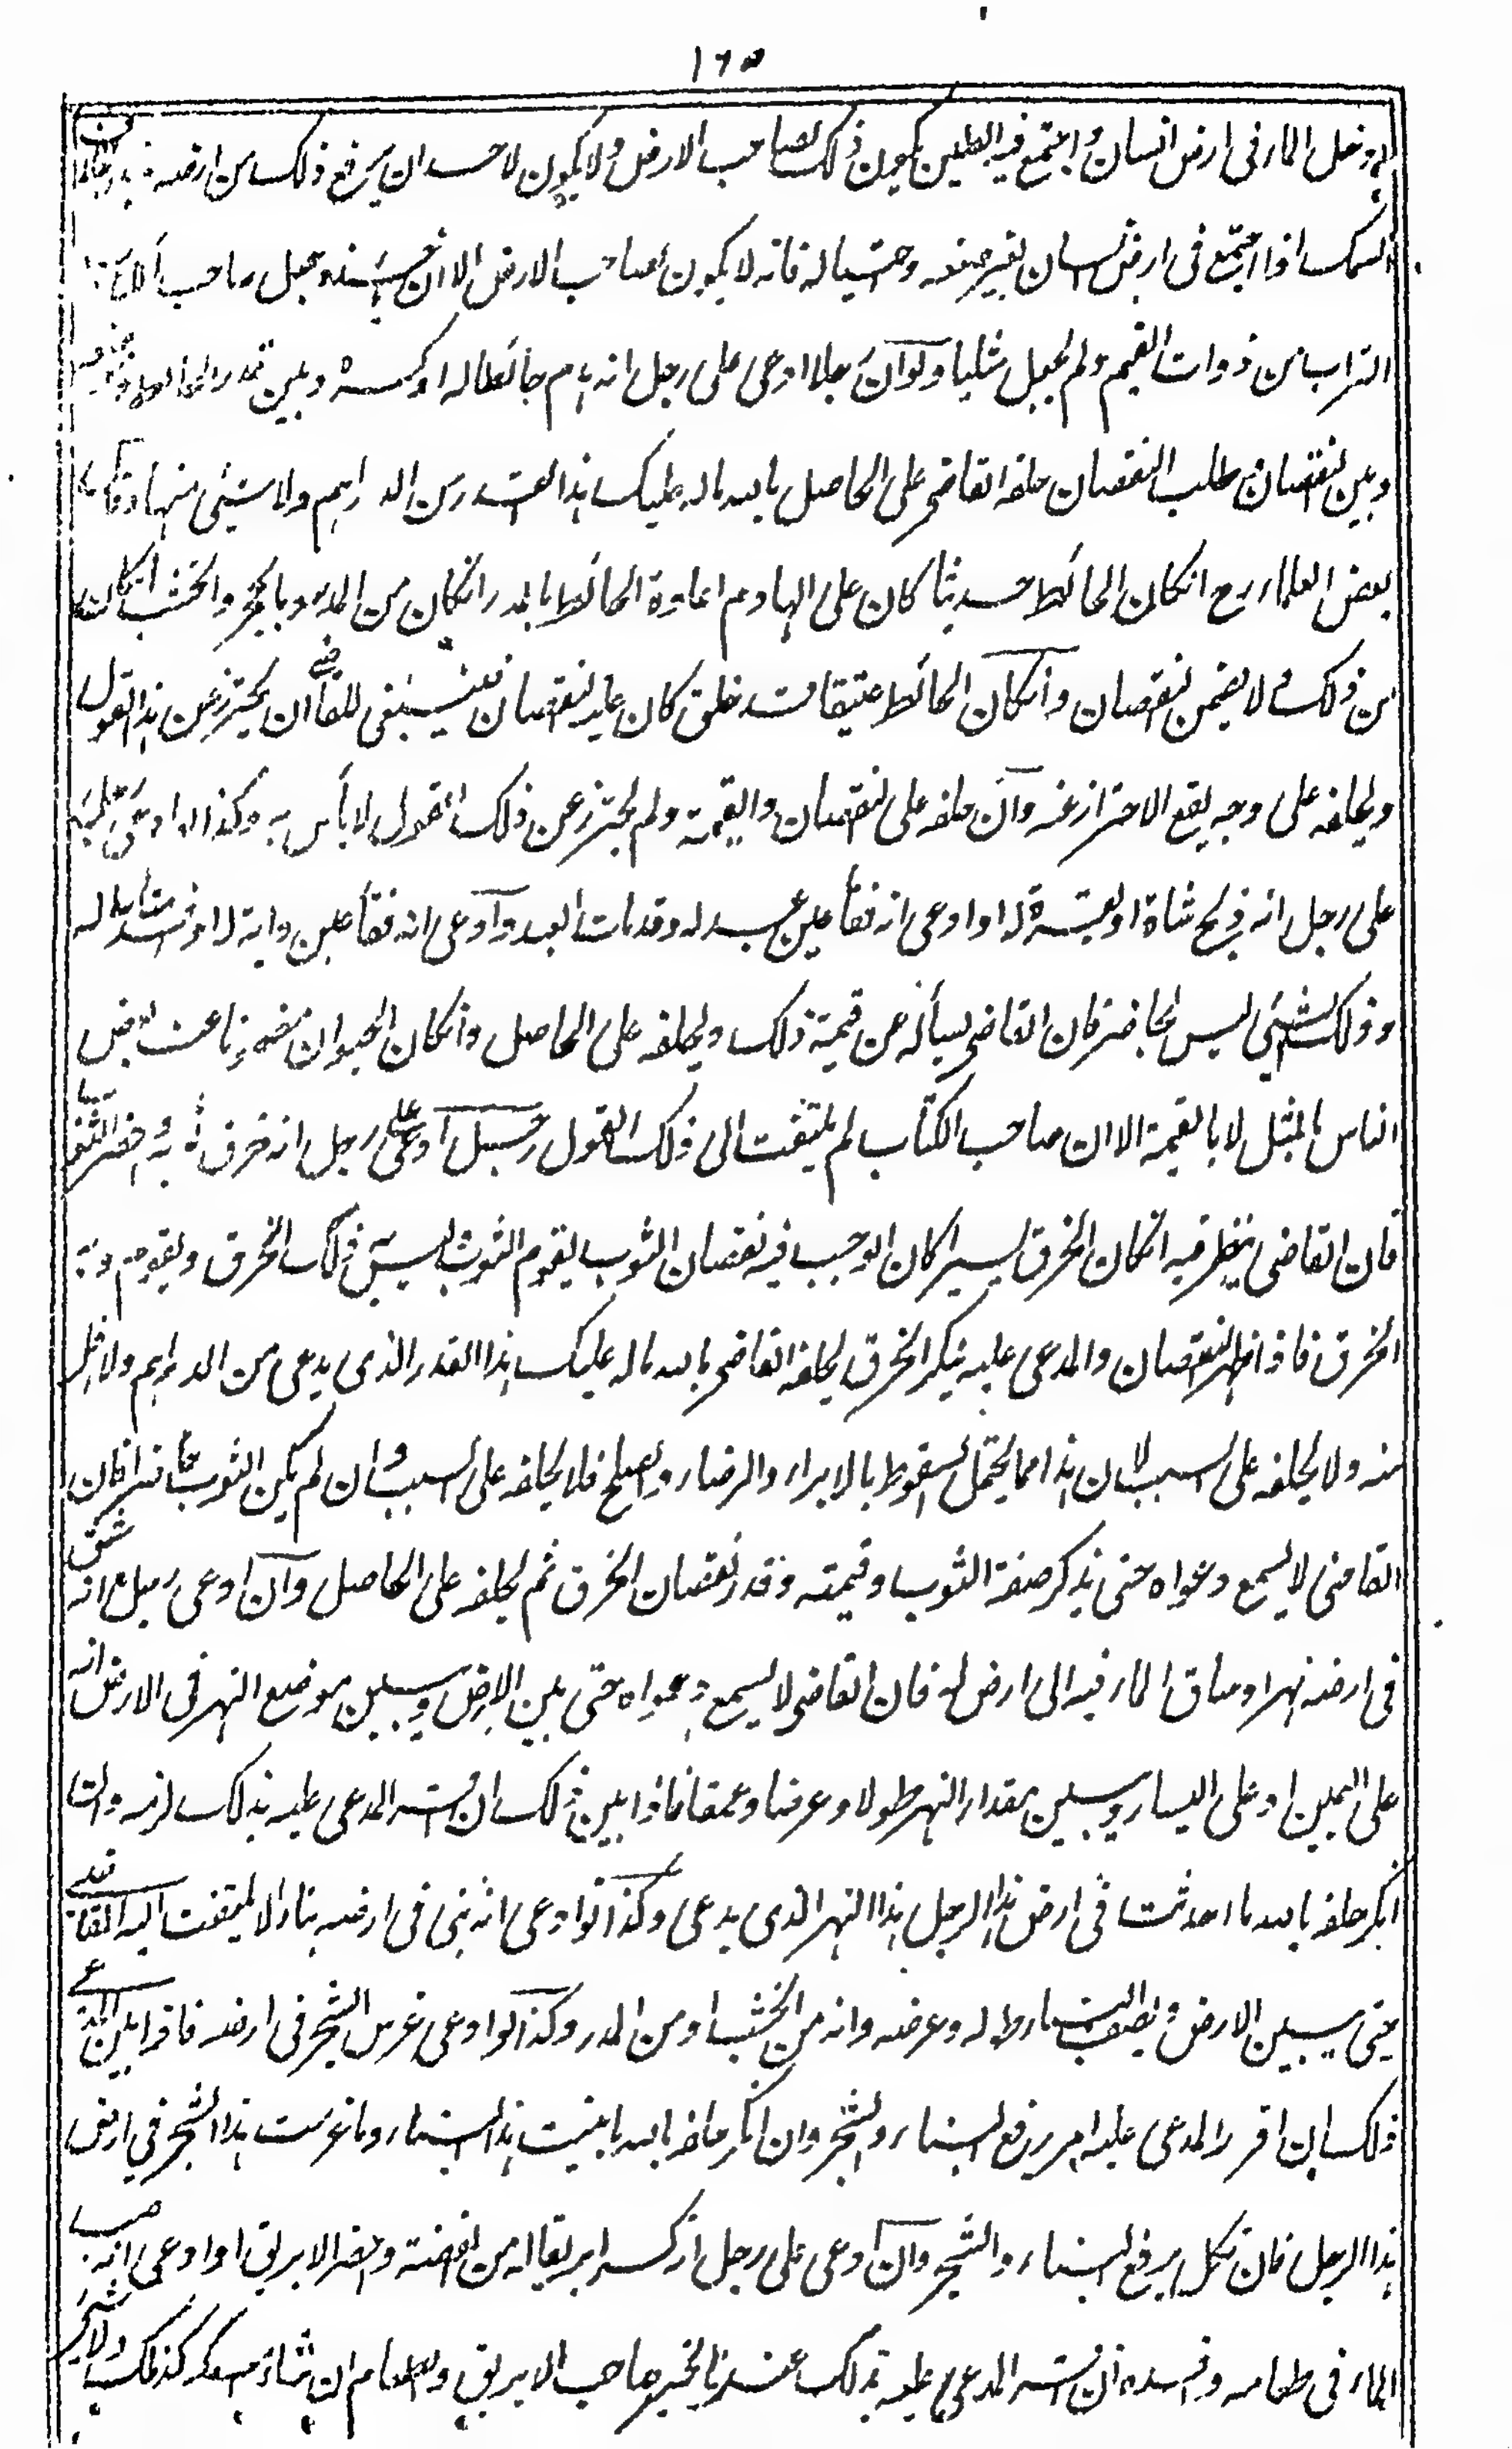 ١٦٥
دخل الماء فى ارض انسان واجتمع فيه الطين يكون ذلك لصاحب الارض ولا يكون لاحد ان يرفع ذلك من ارضه
السمك اذا اجتمع فى ارض انسان بغير صنعه واحتياله فانه لا يكون لصاحب الارض الا ان جعل صاحب
التراب من ذوات القيم ولم يجعل مثليا ولو ان رجلا ادعى على رجل انه هدم حائطا له او كسره وبين قدر الحائط
وبين النقصان طلب النقصان حلفه القاضى على الحاصل بالله ماله عليك هذا القدر من الدراهم ولا شيئ منها وقال
بعض العلماء رح انكان الحائط حديثا كان على الهادم اعادة الحائط بالمدر انكان من المدر وبالحجر والخشب انكان
من ذلك ولا يضمن النقصان وانكان الحائط عتيقا قد خلق كان عليه النقصان فينبغى للقاضى ان يحترز عن هذا القول
ويحلفه على وجه يقع الاحتراز عنه وان حلفه على النقصان والقيمة ولم يحترز عن ذلك القول لا بأس به وكذا لو ادعى
على رجل انه ذبح شاة او بقرة له او ادعى انه فقأ عين عبد له وقد مات العبد او ادعى انه فقأ عين دابة له او افسد متاعا له
وذلك الشئ ليس بحاضر فان القاضى يسأله عن قيمة ذلك ويحلفه على الحاصل وانكان الحيوان مضمونا عند بعض
الناس بالمثل لا بالقيمة الا ان صاحب الكتاب لم يلتفت الى ذلك القول رجل ادعى على رجل انه خرق ثوبه واحضر الثوب
فان القاضى ينظر فيه انكان الخرق يسيرا كان الواجب فيه نقصان الثوب يقوم الثوب ليس به ذلك الخرق ويقوم وبه
الخرق فاذا ظهر النقصان والمدعى عليه ينكر الخرق يحلفه القاضى بالله ماله عليك هذا القدر الذى يدعى من الدراهم ولا اقل
منه ولا يحلفه على السبب لان هذا مما يحتمل السقوط بالابراء والرضاء والصلح فلا يحلفه على السبب وان لم يكن الثوب حاضرا فان
القاضى لا يسمع دعواه حتى يذكر صفة الثوب وقيمته وقدر نقصان الخرق ثم يحلفه على الحاصل وان ادعى رجل انه شق
فى ارضه نهرا وساق الماء فيه الى ارض له فان القاضى لا يسمع دعواه حتى يبين الارض ويبين موضع النهر فى الارض انه
على اليمين او على اليسار ويبين مقدار النهر طولا وعرضا وعمقا فاذا بين ذلك ان اقر المدعى عليه بذلك لزمه وان
انكر حلفه بالله ما احدثت فى ارض هذا الرجل هذا النهر الذى يدعى وكذا لو ادعى انه بنى فى ارضه بناء لا يلتفت اليه القاضى
حتى يبين الارض ويصف البناء وطوله وعرضه وانه من الخشب او من المدر وكذا لو ادعى غرس الشجر فى ارضه فاذا بين المدعى
ذلك ان اقر المدعى عليه امر برفع البناء والشجر وان انكر حلفه بالله ما بنيت هذا البناء وما غرست هذا الشجر فى ارض
هذا الرجل فان نكل امر برفع البناء والشجر وان ادعى على رجل انه كسر ابريقا له من الفضة واحضر الابريق او ادعى انه صب
الماء فى طعامه وافسده ان اقر المدعى عليه بذلك عندنا يخير صاحب الابريق والطعام ان شاء امسكه كذلك ولا شئ